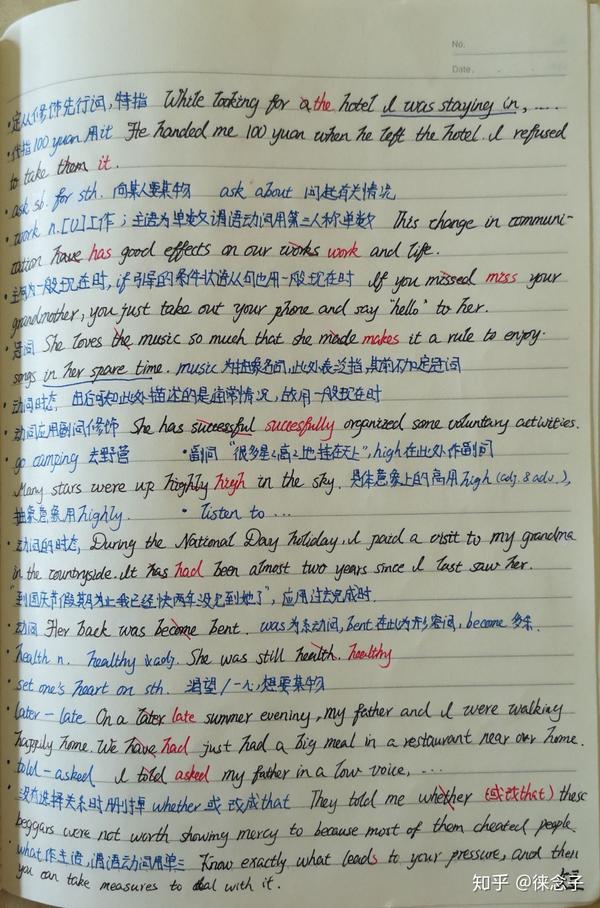 No.
Date.
·定从修饰先行词,特指 While looking for a the hotel I was staying in, ....
·代指100 yuan 用it He handed me 100 yuan when he left the hotel. I refused
to take them it.
·ask sb. for sth. 向某人要某物 ask about 问起有关情况
·work n.[U]工作;主语为单数,谓语动词用第三人称单数 This change in communi-
cation have has good effects on our works work and life.
·主句为一般现在时,if引导的条件状语从句也用一般现在时 If you missed miss your
grandmother, you just take out your phone and say "hello" to her.
·冠词 She loves the music so much that she made makes it a rule to enjoy
songs in her spare time. music为抽象名词,此处表泛指,其前不加定冠词
·动词时态, 由后可知此处描述的是通常情况,故用一般现在时
·动词应用副词修饰 She has successful succesfully organized some voluntary activities.
·go camping 去野营 ·副词 "很多星星高高地挂在天上",high在此处作副词
Many stars were up highly high in the sky. 具体意象上的高用high (adj.&adv.),
抽象意象用highly. ·listen to ...
·动词的时态, During the National Day holiday, I paid a visit to my grandma
in the countryside. It has had been almost two years since I last saw her.
"到国庆节假期为止我已经快两年没见到她了",应用过去完成时.
·动词 Her back was become bent. was为系动词,bent在此为形容词,become多余.
·health n. healthy adj. She was still health. healthy
·set one's heart on sth. 渴望/一心想要某物
·later-late On a later late summer evening, my father and I were walking
happily home. We have had just had a big meal in a restaurant near our home.
·told-asked I told asked my father in a low voice, ...
·没有选择关系时删掉 whether 或 改成that They told me whether (或改that) these
beggars were not worth showing mercy to because most of them cheated people.
·what作主语,谓语动词用单三 Know exactly what leads to your pressure, and then
you can take measures to deal with it.
知乎 @徕念子